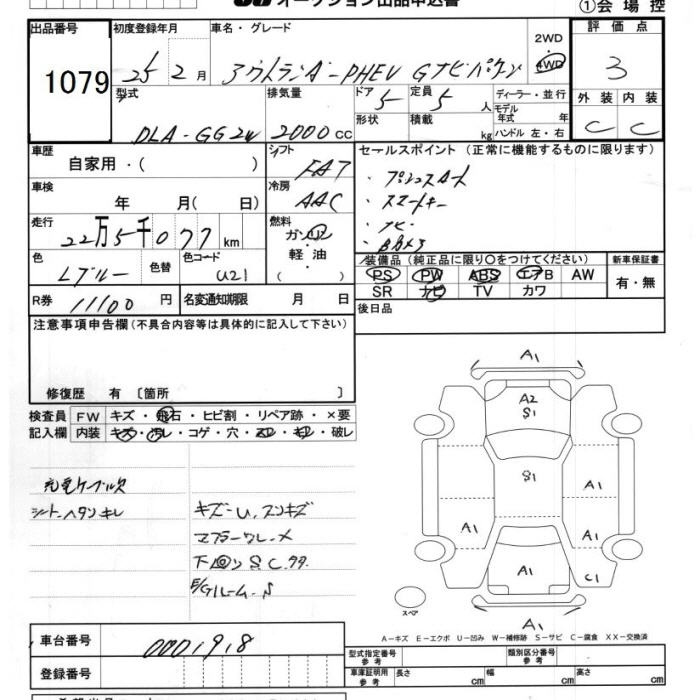 オークション出品申込書
①会場控
出品番号
1079
初度登録年月
25年 2月
車名・グレード
アウトランダーPHEV Gナビパッケージ
2WD
4WD
評価点
3
型式
DLA-GG2W
排気量
2000cc
ドア
5
形状
定員
5人
積載
kg
ディーラー・並行
モデル年式 年
ハンドル 左・右
外装 内装
C C
車歴
自家用・( )
シフト
FAT
車検
年 月( 日)
冷房
AAC
走行
22万5千077km
燃料
ガソリン
軽・油
( )
色
Lブルー
色替
色コード
U21
R券
11100円
名変通知期限 月 日
セールスポイント(正常に機能するものに限ります)
・プッシュスタート
・スマートキー
・ナビ
・Bカメラ
装備品(純正品に限り○をつけてください)
PS PW ABS エアB AW
SR ナビ TV カワ
新車保証書
有・無
後日品
注意事項申告欄(不具合内容等は具体的に記入して下さい)
修復歴 有 〔箇所 〕
検査員
記入欄
FW キズ・飛石・ヒビ割・リペア跡・×要
内装 キズ・汚レ・コゲ・穴・スレ・キレ・破レ
充電ケーブル欠
シートヘタンキレ
キズーU、スンキズ
マフラーワレ、メ
下回りS C.
E/Gルーム S
A1
A2
S1
S1
A1
A1
A1
A1
C1
A1
スペア
A1
A-キズ E-エクボ U-凹み W-補修跡 S-サビ C-腐食 XX-交換済
車台番号
0001918
登録番号
型式指定番号
参考
類別区分番号
参考
車庫証明用
参考
長さ cm 幅 cm 高さ cm